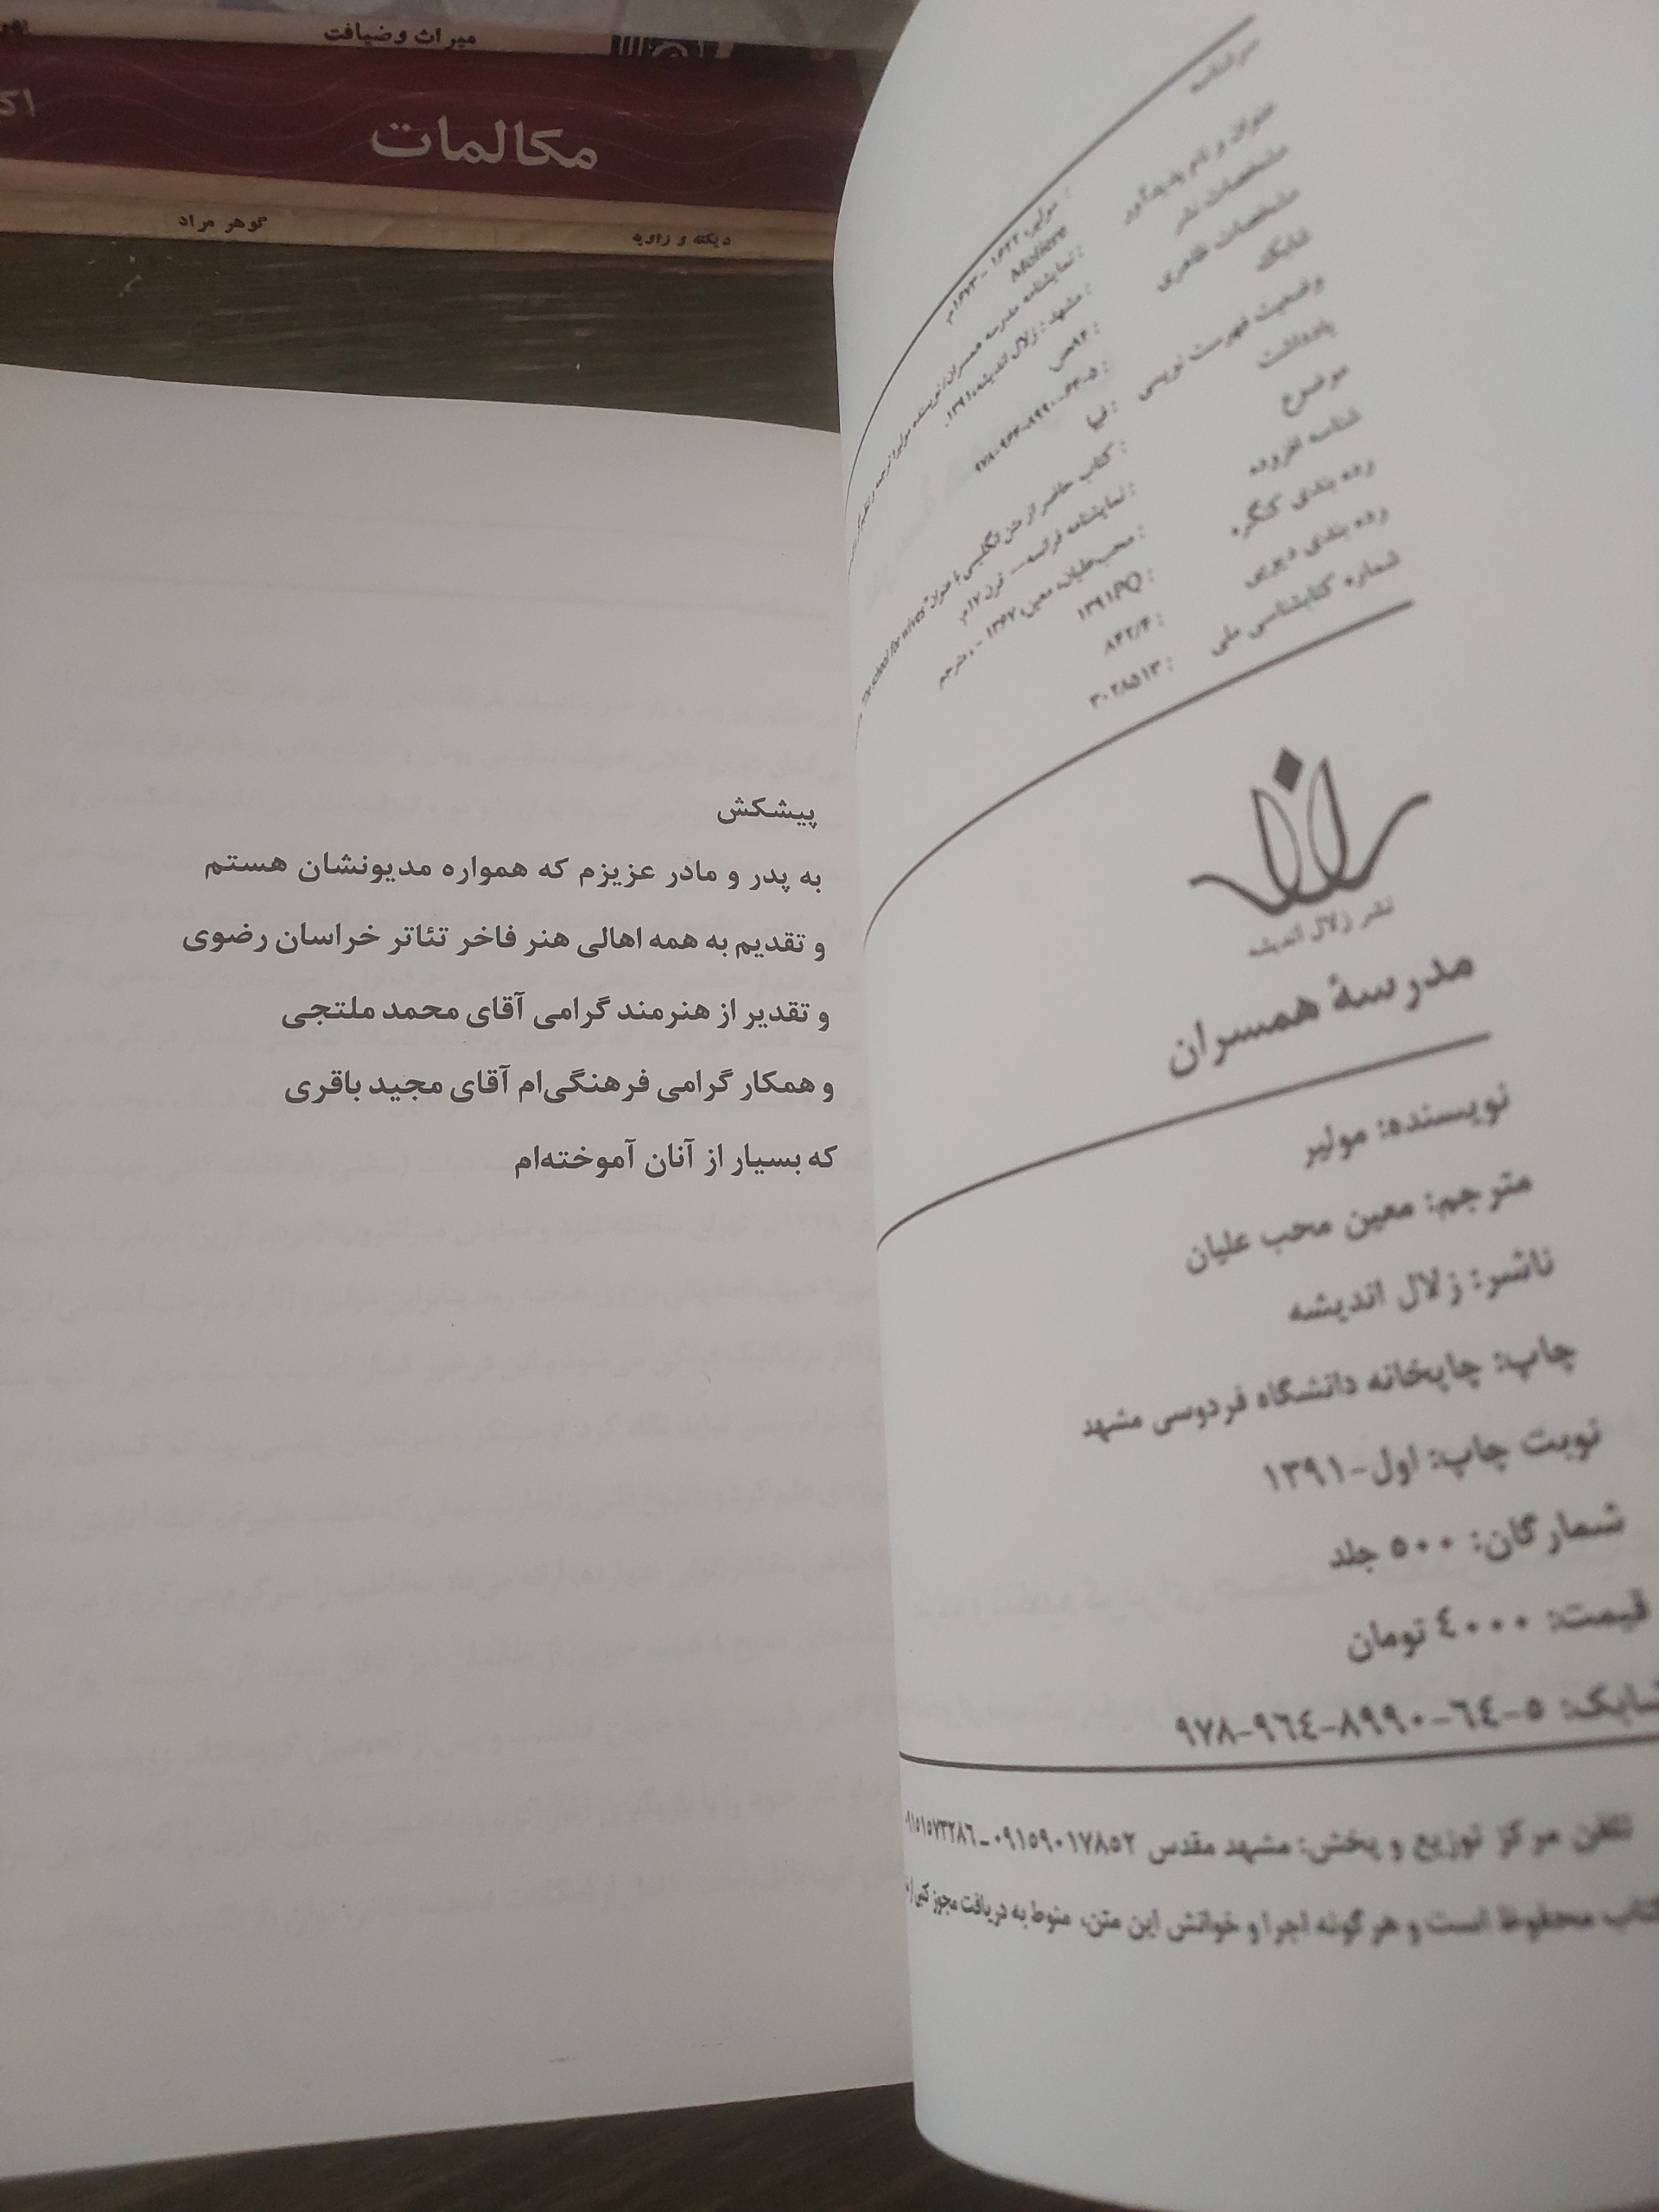 میراث و ضیافت
مکالمات
گوهر مراد
دیکته و زاویه
سرشناسه : مولیر، ۱۶۲۲ - ۱۶۷۳م.
Moliere
عنوان و نام پدیدآور : نمایشنامه مدرسه همسران/ نویسنده مولیر؛ ترجمه و
مشخصات نشر : مشهد: زلال اندیشه، ۱۳۹۱.
مشخصات ظاهری : ۹۲ص
شابک : ۹۷۸-۹۶۴-۸۹۹۰-۶۴-۵
وضعیت فهرست نویسی : فیپا
یادداشت : کتاب حاضر از متن انگلیسی با عنوان "The school for wives"
موضوع : نمایشنامه فرانسه -- قرن ۱۷م.
شناسه افزوده : محب‌علیان، معین، ۱۳۶۷ - ، مترجم
رده بندی کنگره : ۱۳۹۱ PQ
رده بندی دیویی : ۸۴۲/۴
شماره کتابشناسی ملی : ۳۰۲۸۵۱۳
نشر زلال اندیشه
مدرسهٔ همسران
نویسنده: مولیر
مترجم: معین محب علیان
ناشر: زلال اندیشه
چاپ: چاپخانه دانشگاه فردوسی مشهد
نوبت چاپ: اول-۱۳۹۱
شمارگان: ۵۰۰ جلد
قیمت: ۴۰۰۰ تومان
شابک: ۵-۶۴-۸۹۹۰-۹۶۴-۹۷۸
تلفن مرکز توزیع و پخش: مشهد مقدس ۰۹۱۵۹۰۱۷۸۵۲ - ۰۹۱۵۱۵۷۳۲۸۶
کتاب محفوظ است و هر گونه اجرا و خوانش این متن، منوط به دریافت مجوز کتبی از
پیشکش
به پدر و مادر عزیزم که همواره مدیونشان هستم
و تقدیم به همه اهالی هنر فاخر تئاتر خراسان رضوی
و تقدیر از هنرمند گرامی آقای محمد ملتجی
و همکار گرامی فرهنگی‌ام آقای مجید باقری
که بسیار از آنان آموخته‌ام